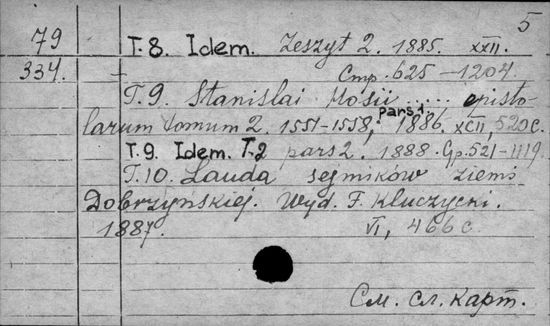 5
79 T.8. Idem. Zeszyt 2. 1885. XXII.
334. Стр. 625-1204.
T.9. Stanislai Hosii ..... episto-
larum tomum 2. 1551-1558, pars 1 1886. XCII, 520 c.
T.9. Idem. T.2 pars 2. 1888. Cтp. 521-1119.
T.10. Lauda sejmików ziemi
Dobrzyńskiej. Wyd. F. Kluczycki.
1887. VI, 466 c.
См. сл. карт.